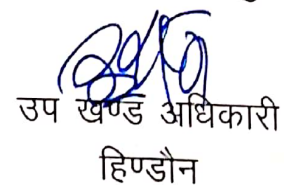 उप खण्ड अधिकारी
हिण्डौन